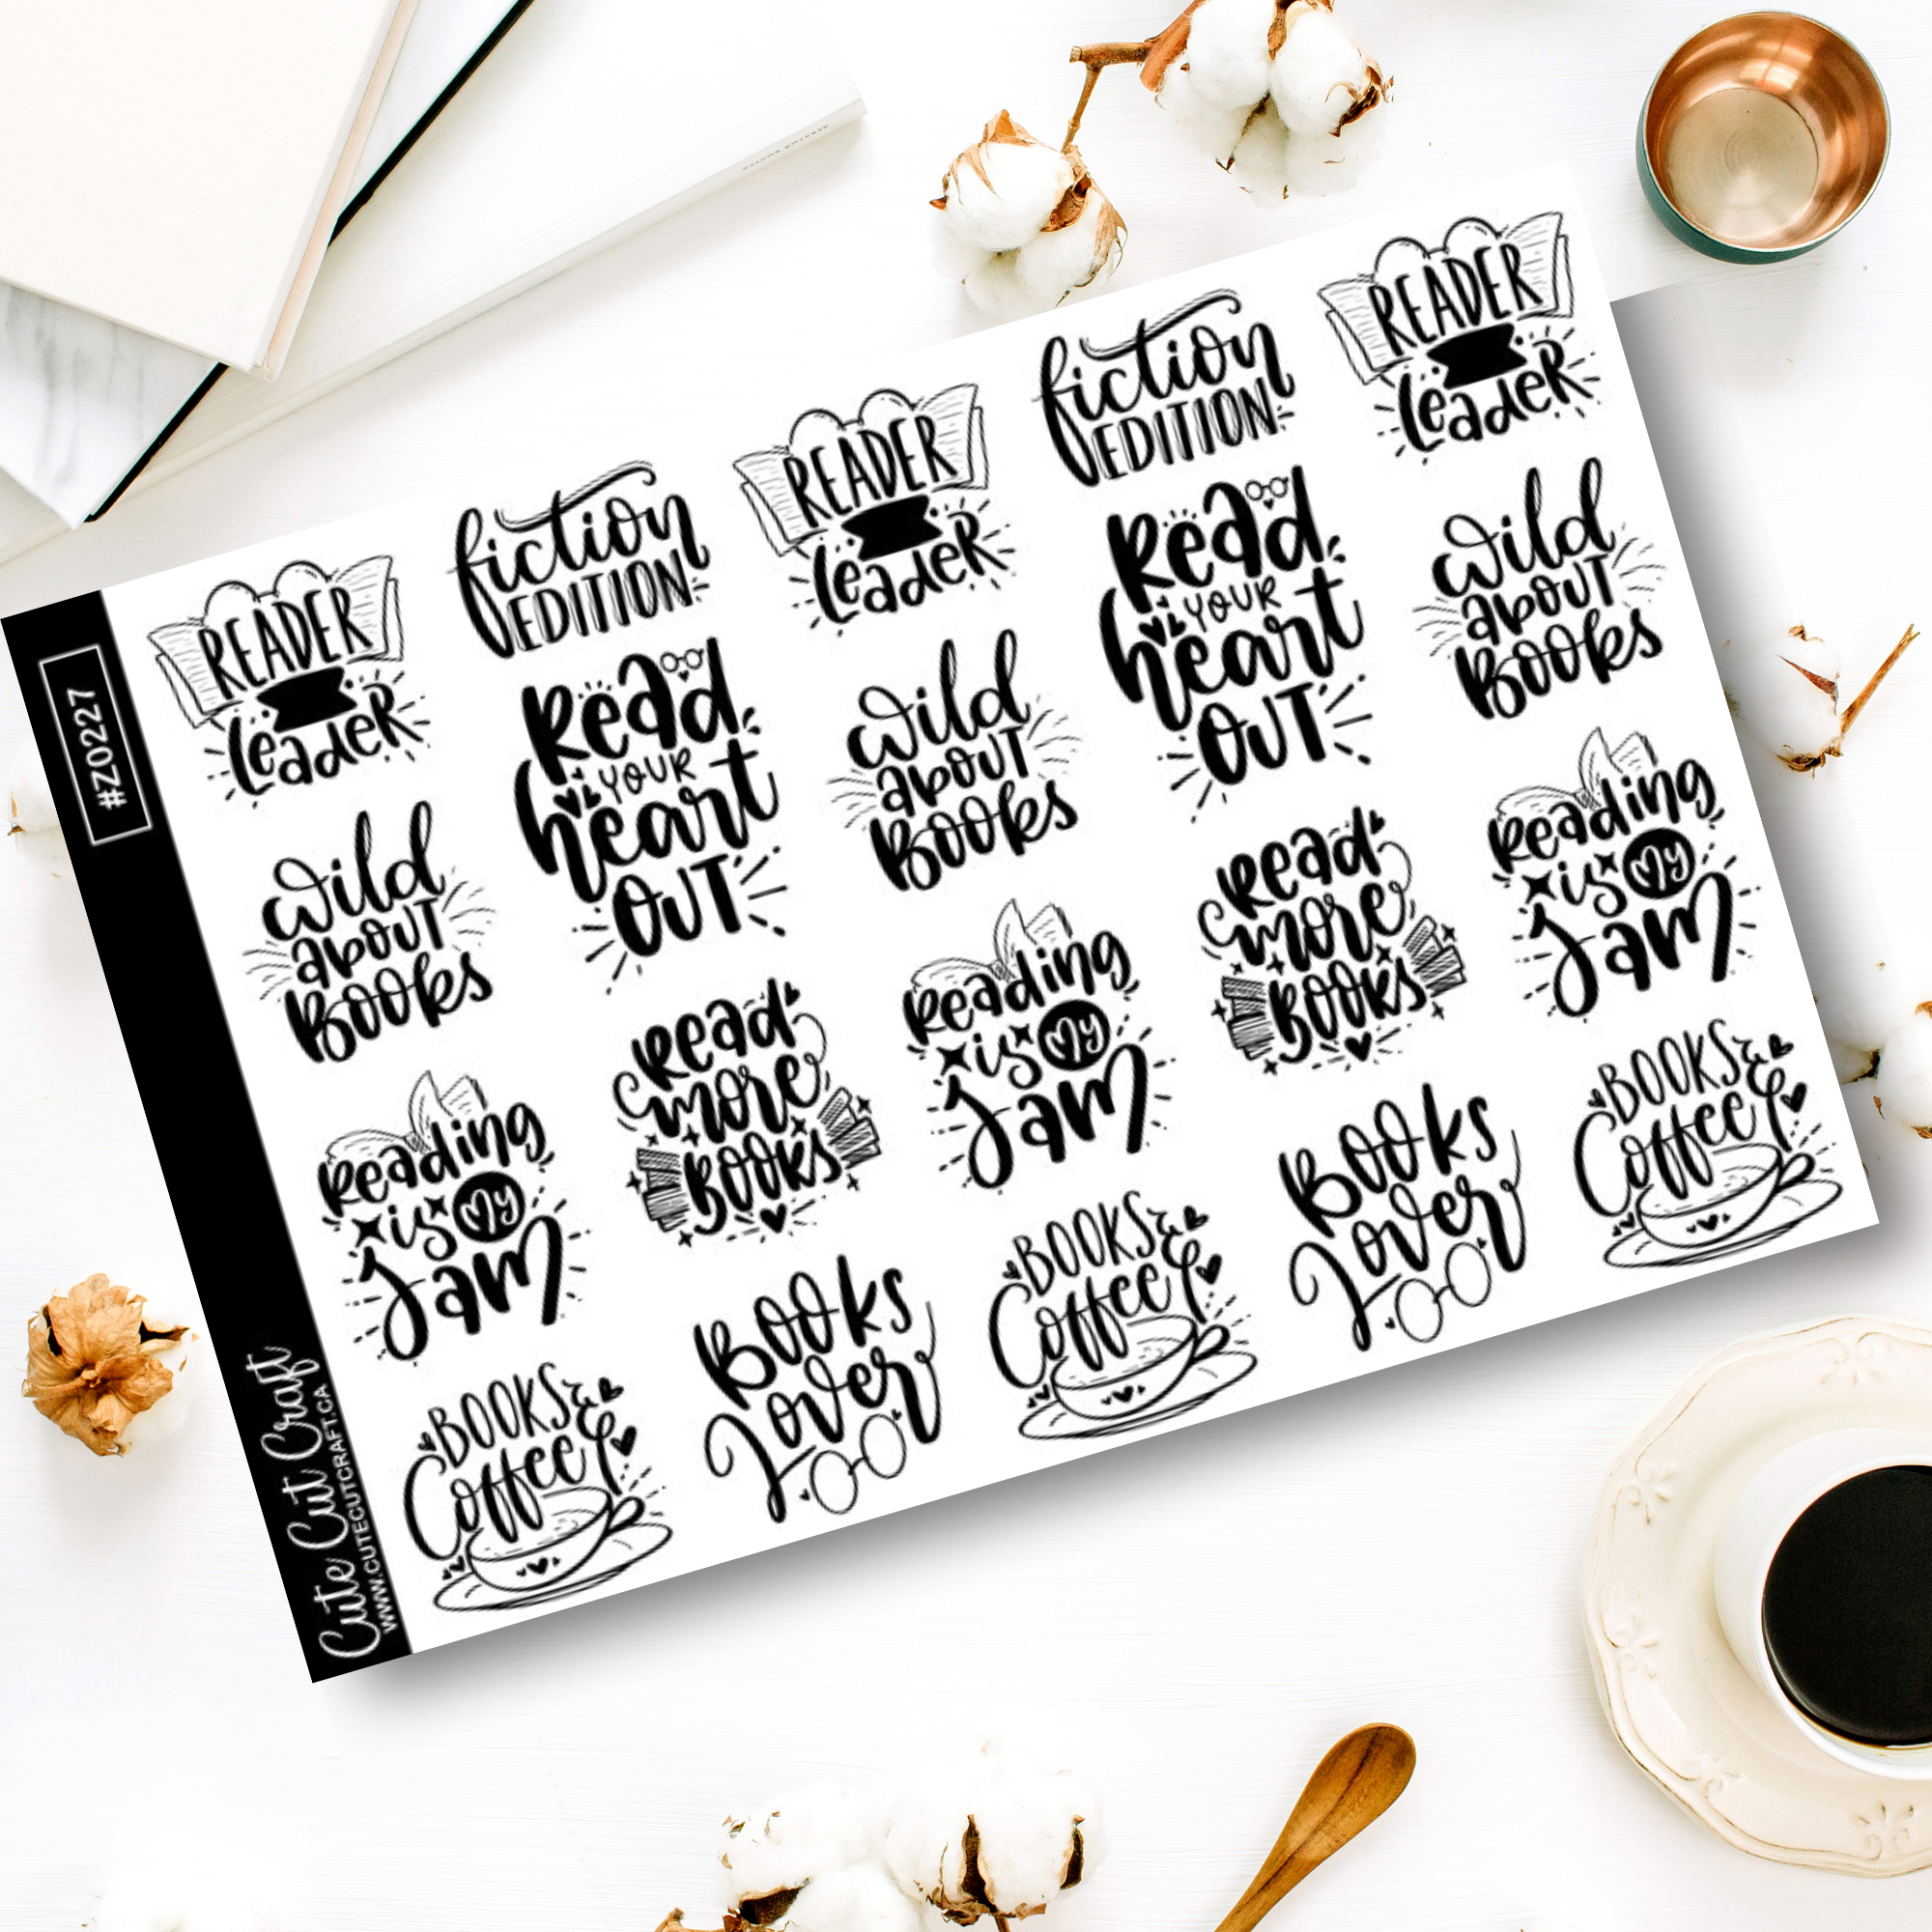 #Z0227
Cute Cut Craft
WWW.CUTECUTCRAFT.CA
READER
LeadeR
fiction
EDITION
READER
LeadeR
fiction
EDITION
READER
LeadeR
Wild
About
Books
Read
YOUR
heart
OUT
Wild
About
Books
Read
YOUR
heart
OUT
Wild
About
Books
Reading
is My
Jam
Read
more
BOOKS
Reading
is My
Jam
Read
more
BOOKS
Reading
is My
Jam
BOOKS &
Coffee
Books
Lover
BOOKS &
Coffee
Books
Lover
BOOKS &
Coffee